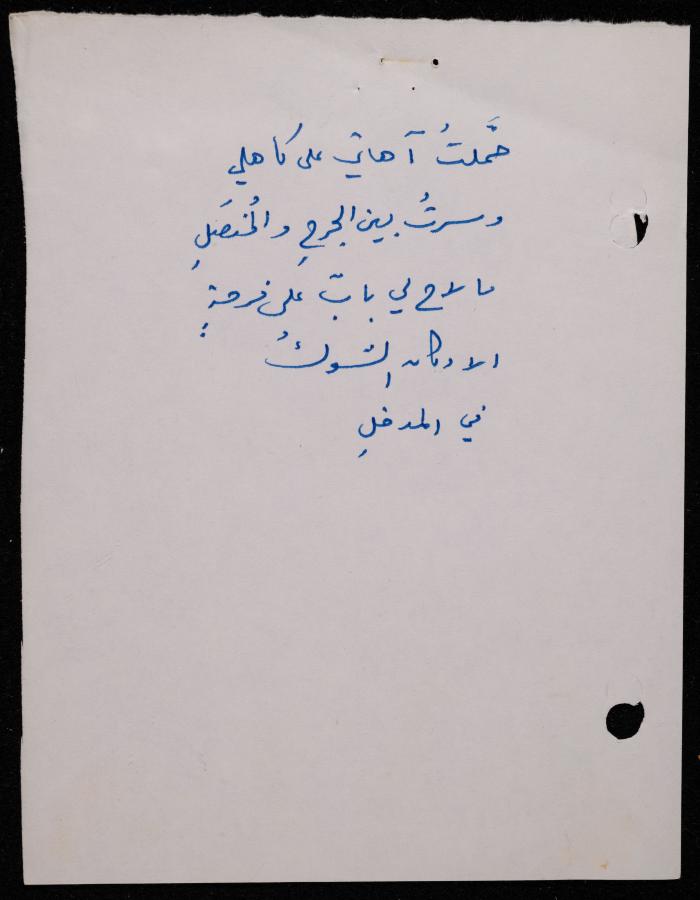 حَمَّلتُ آهاتي على كاهلي
وسرتُ بين الجرحِ والمُنصَلِ
ما لاح لي بابٌ على فرحةٍ
الا وكان الشوكُ
في المدخلِ